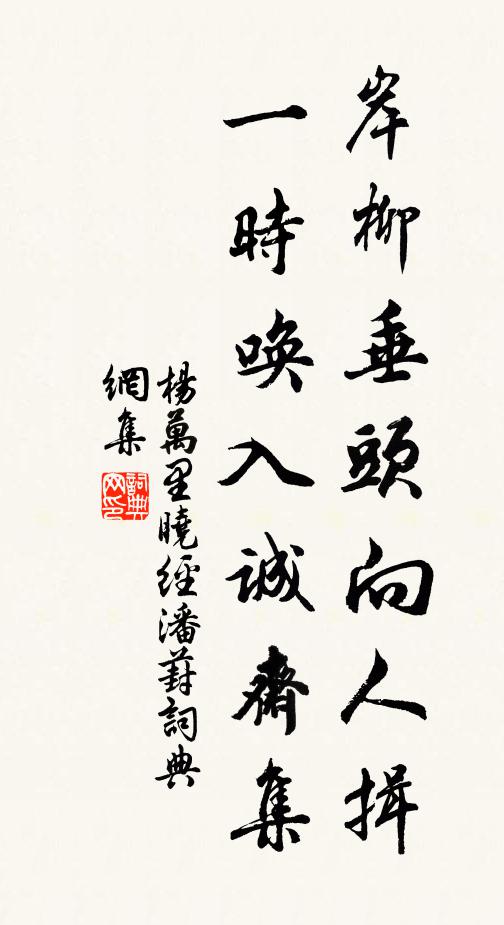 岸柳垂頭向人揖
一時喚入誠齋集
楊萬里曉經潘葑詞典
網集
詞典網印